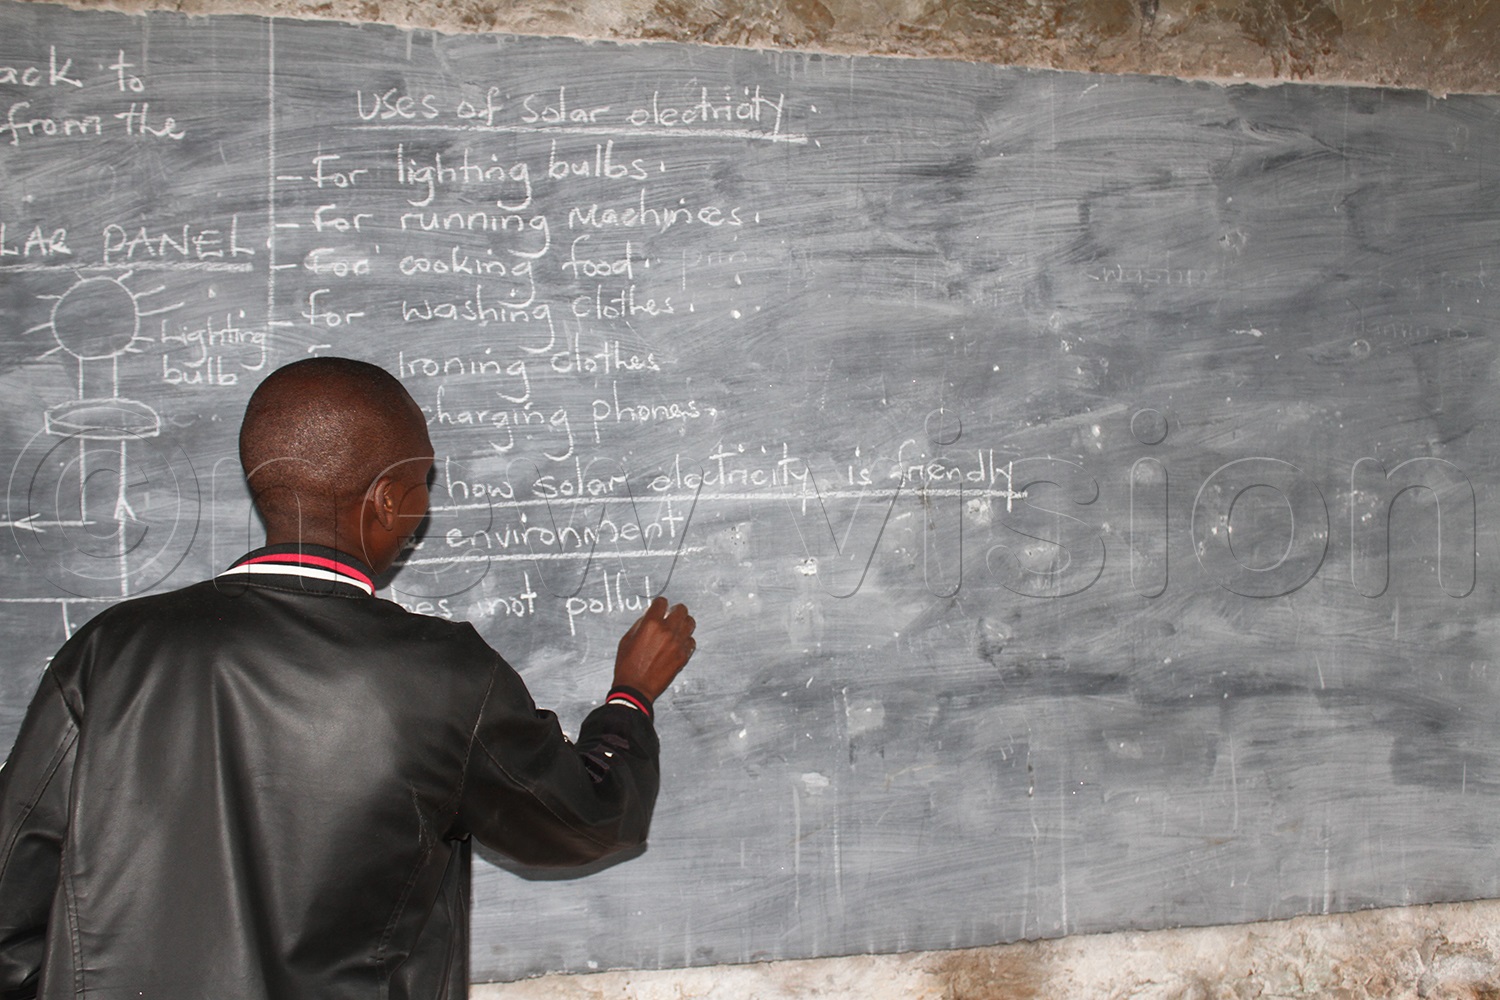 ack to
from the
LAR PANEL
Lighting
bulb
Uses of solar electricity:
- For lighting bulbs.
- For running Machines.
- For cooking food.
- for washing clothes.
Ironing clothes
charging phones.
how solar electricity is friendly
environment
not pollu
©new vision